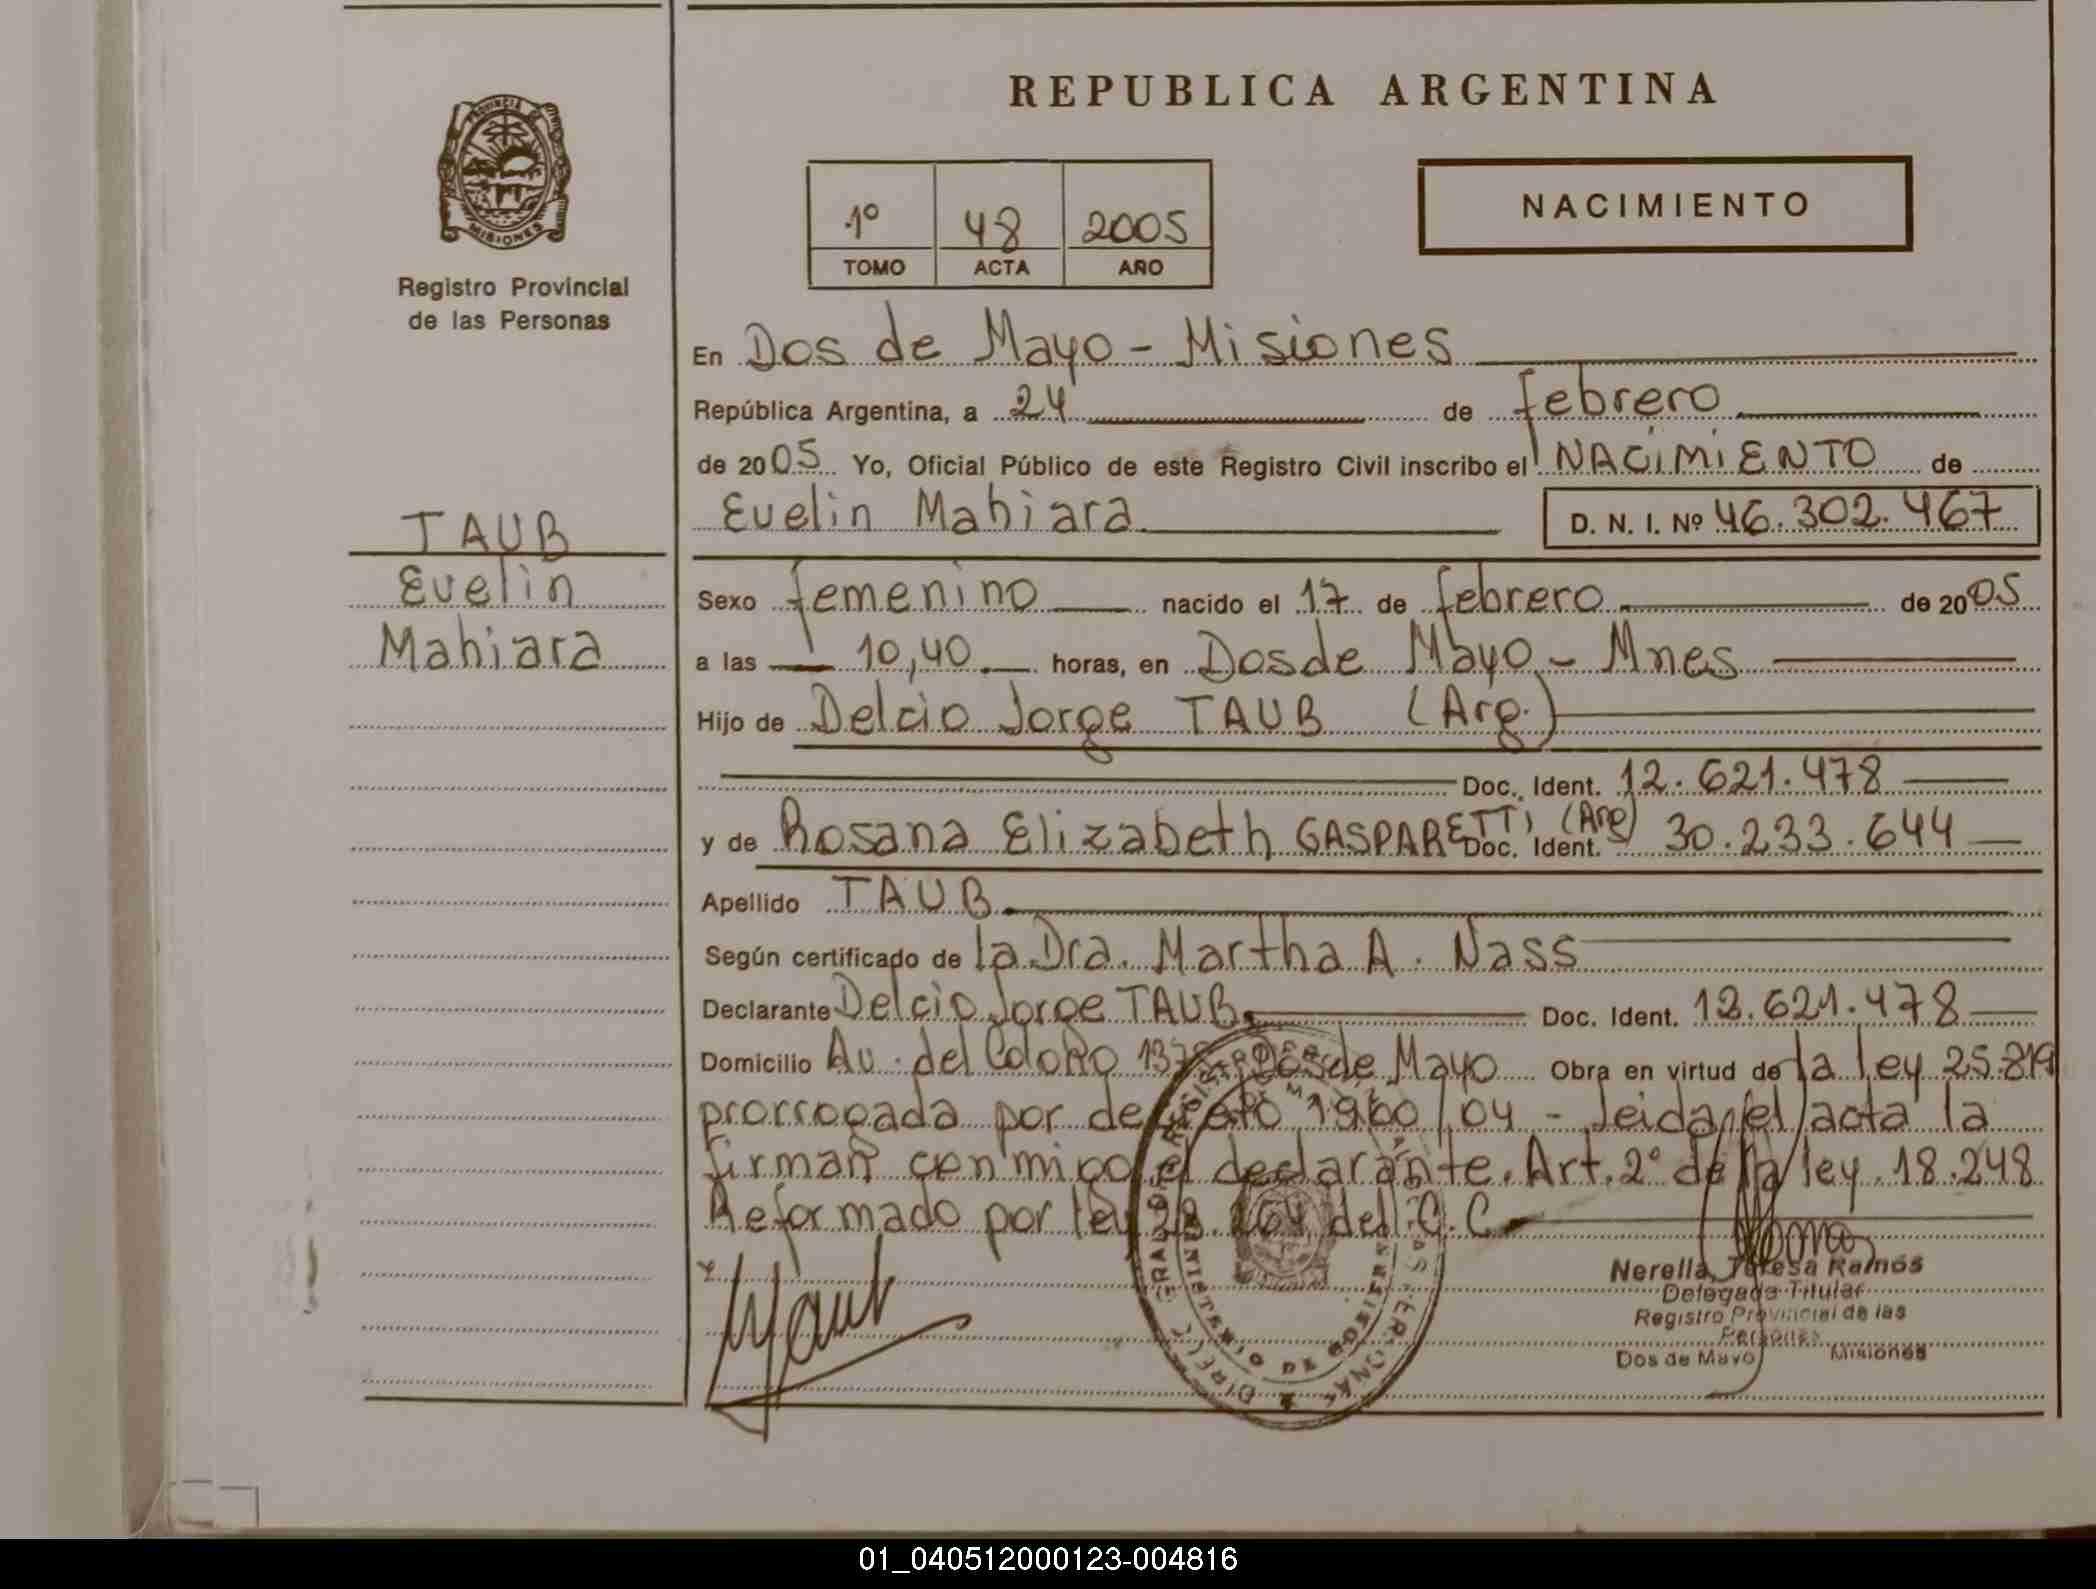 REPUBLICA ARGENTINA
PROVINCIA DE
MISIONES
Registro Provincial
de las Personas
1º 48 2005
TOMO ACTA AÑO
NACIMIENTO
En Dos de Mayo - Misiones
República Argentina, a 24 de febrero
de 2005 Yo, Oficial Público de este Registro Civil inscribo el NACIMIENTO de
Evelin Mahiara D. N. I. Nº 46.302.467
TAUB
Evelin
Mahiara
Sexo femenino nacido el 17 de febrero de 2005
a las 10,40 horas, en Dos de Mayo - Mnes
Hijo de Delcio Jorge TAUB (Arg.)
Doc. Ident. 12.621.478
y de Rosana Elizabeth GASPARETTI (Arg) Doc. Ident. 30.233.644
Apellido TAUB
Según certificado de la Dra. Martha A. Nass
Declarante Delcio Jorge TAUB Doc. Ident. 12.621.478
Domicilio Av. del Dos de Mayo Obra en virtud de la ley 25.819
prorrogada por decreto 1960/04 - Leida el acta la
firman conmigo el declarante. Art. 2º de la ley 18.248
Reformado por ley 23.264 del C.C
Taub
Nerella, Teresa Ramos
Delegada Titular
Registro Provincial de las
Personas
Dos de Mayo Misiones
01_040512000123-004816